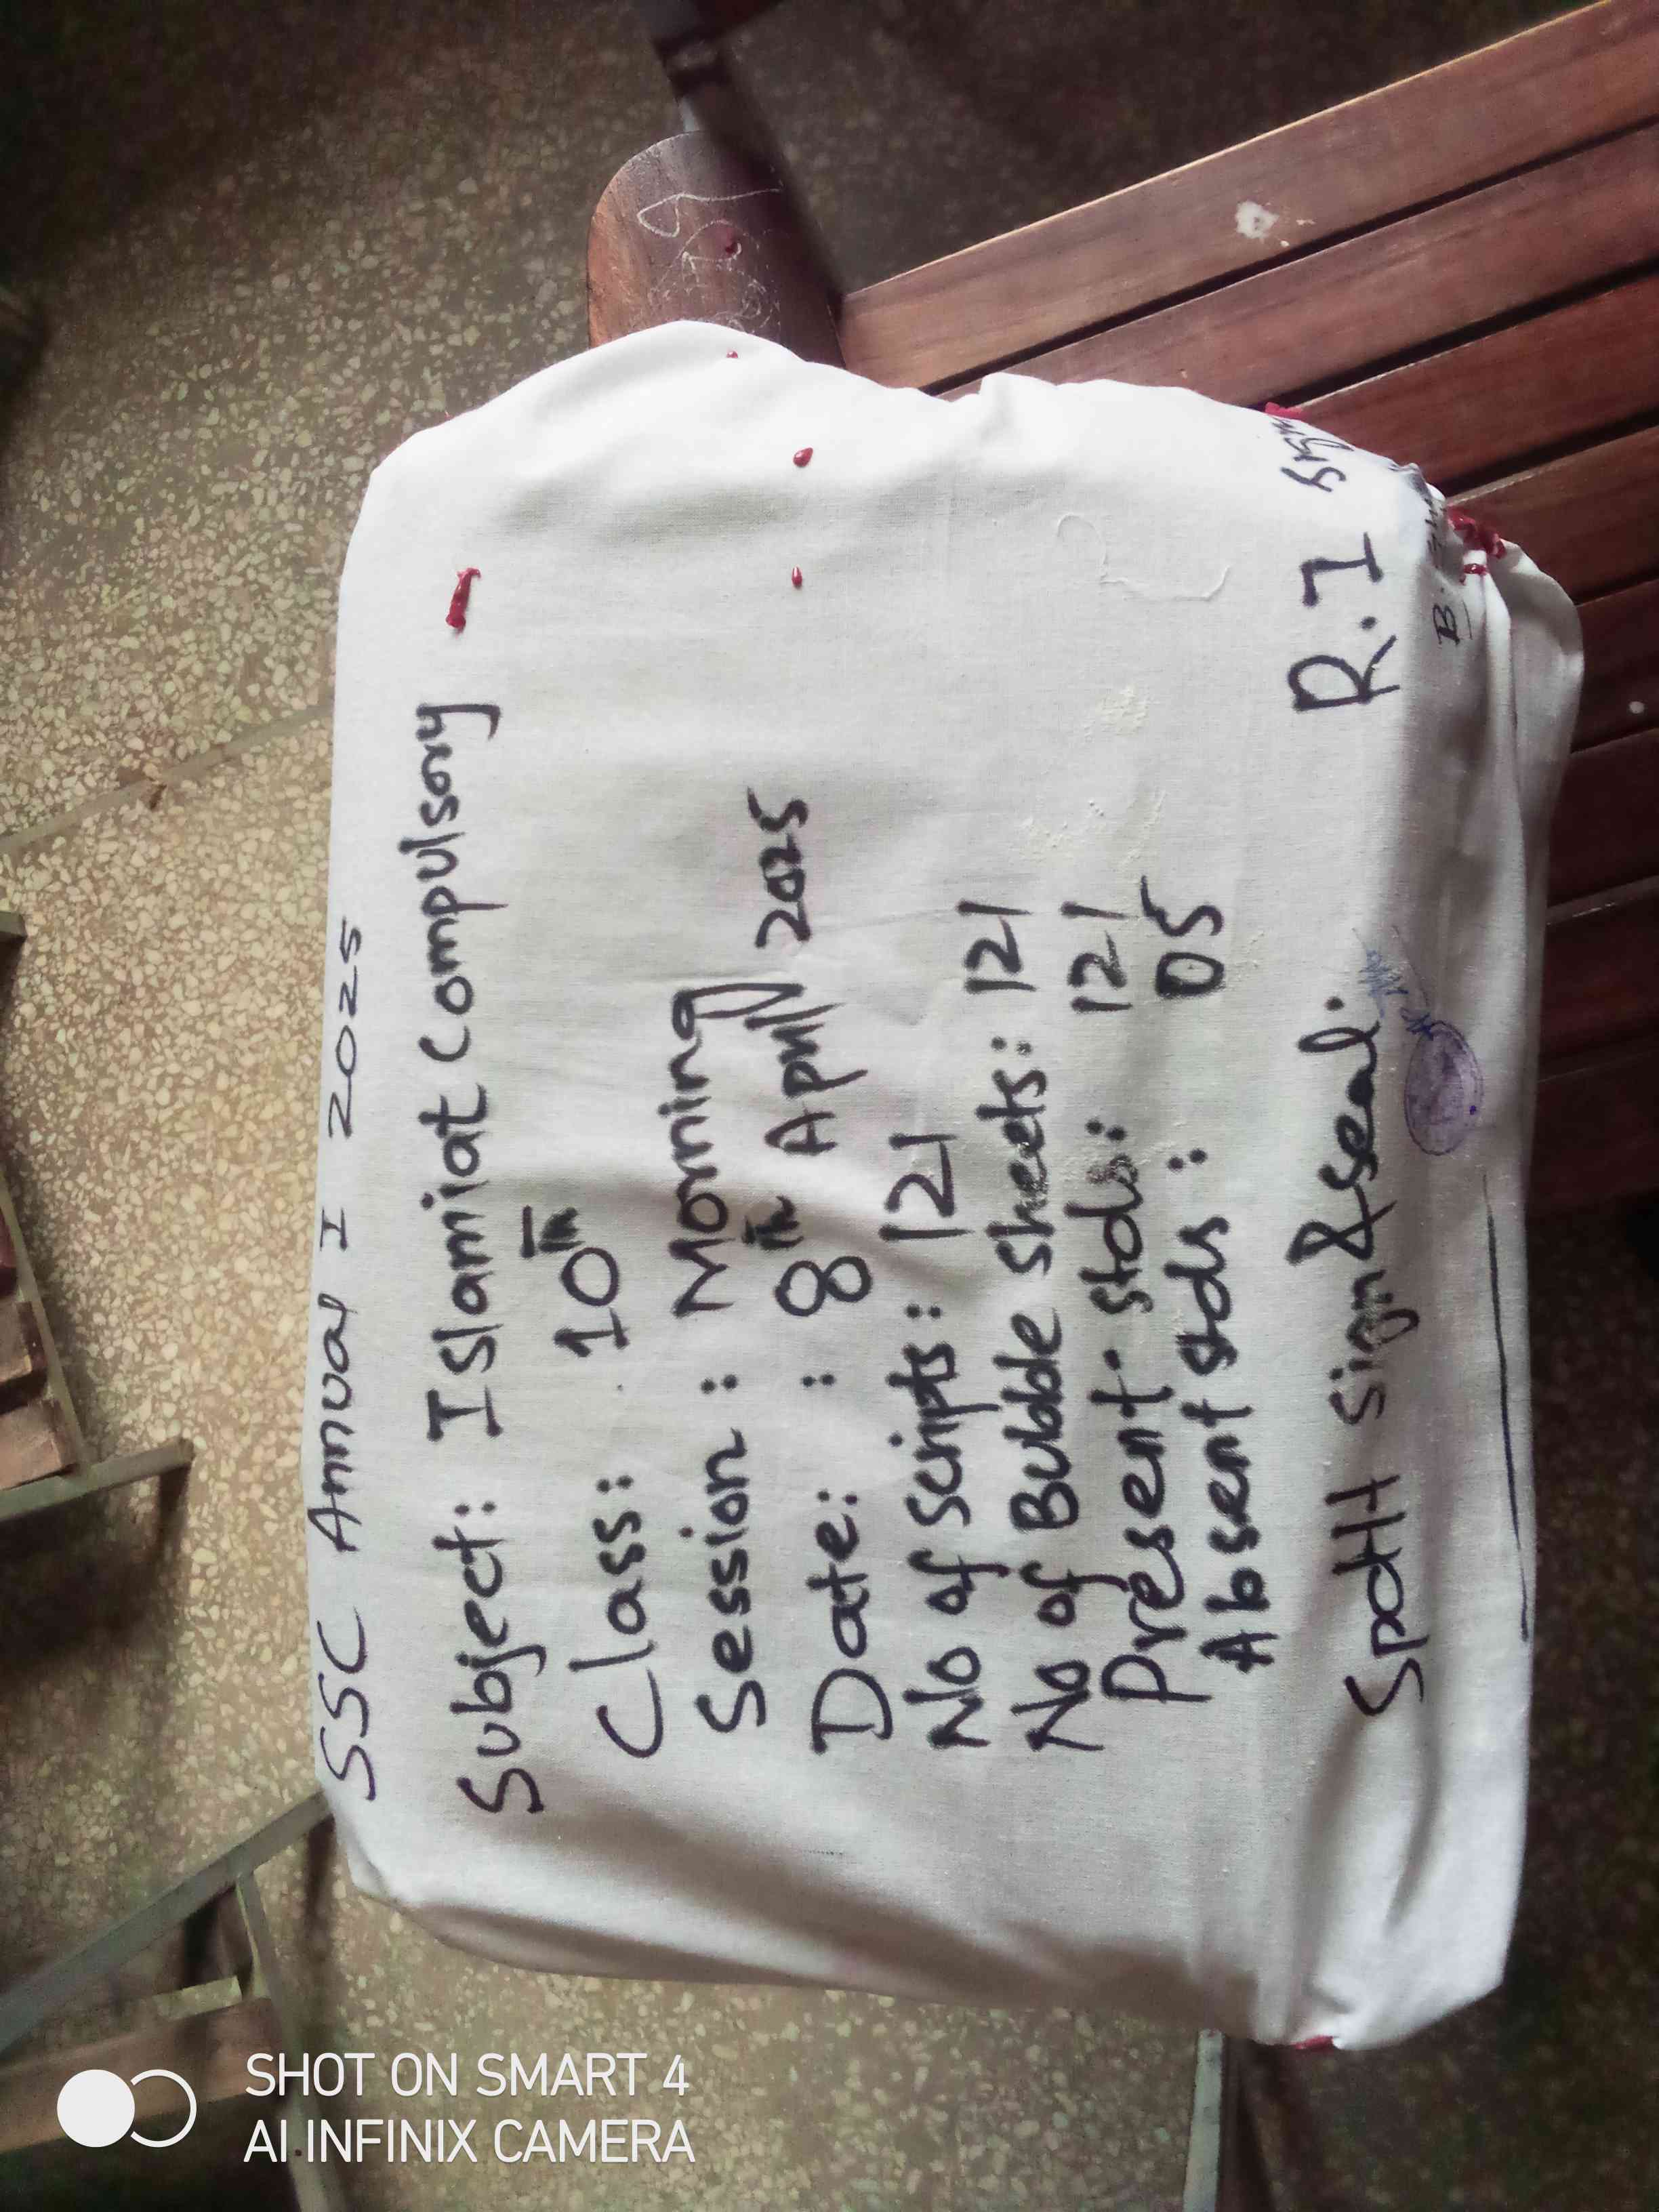 SSC Annual I 2025
Subject: Islamiat Compulsory
Class: 10th
Session: Morning
Date: : 8th April 2025
No of scripts: 121
No of Bubble sheets: 121
Present stds: 121
Absent stds: 05
R.I Sign
Spdtt Sign & seal.
SHOT ON SMART 4
AI INFINIX CAMERA